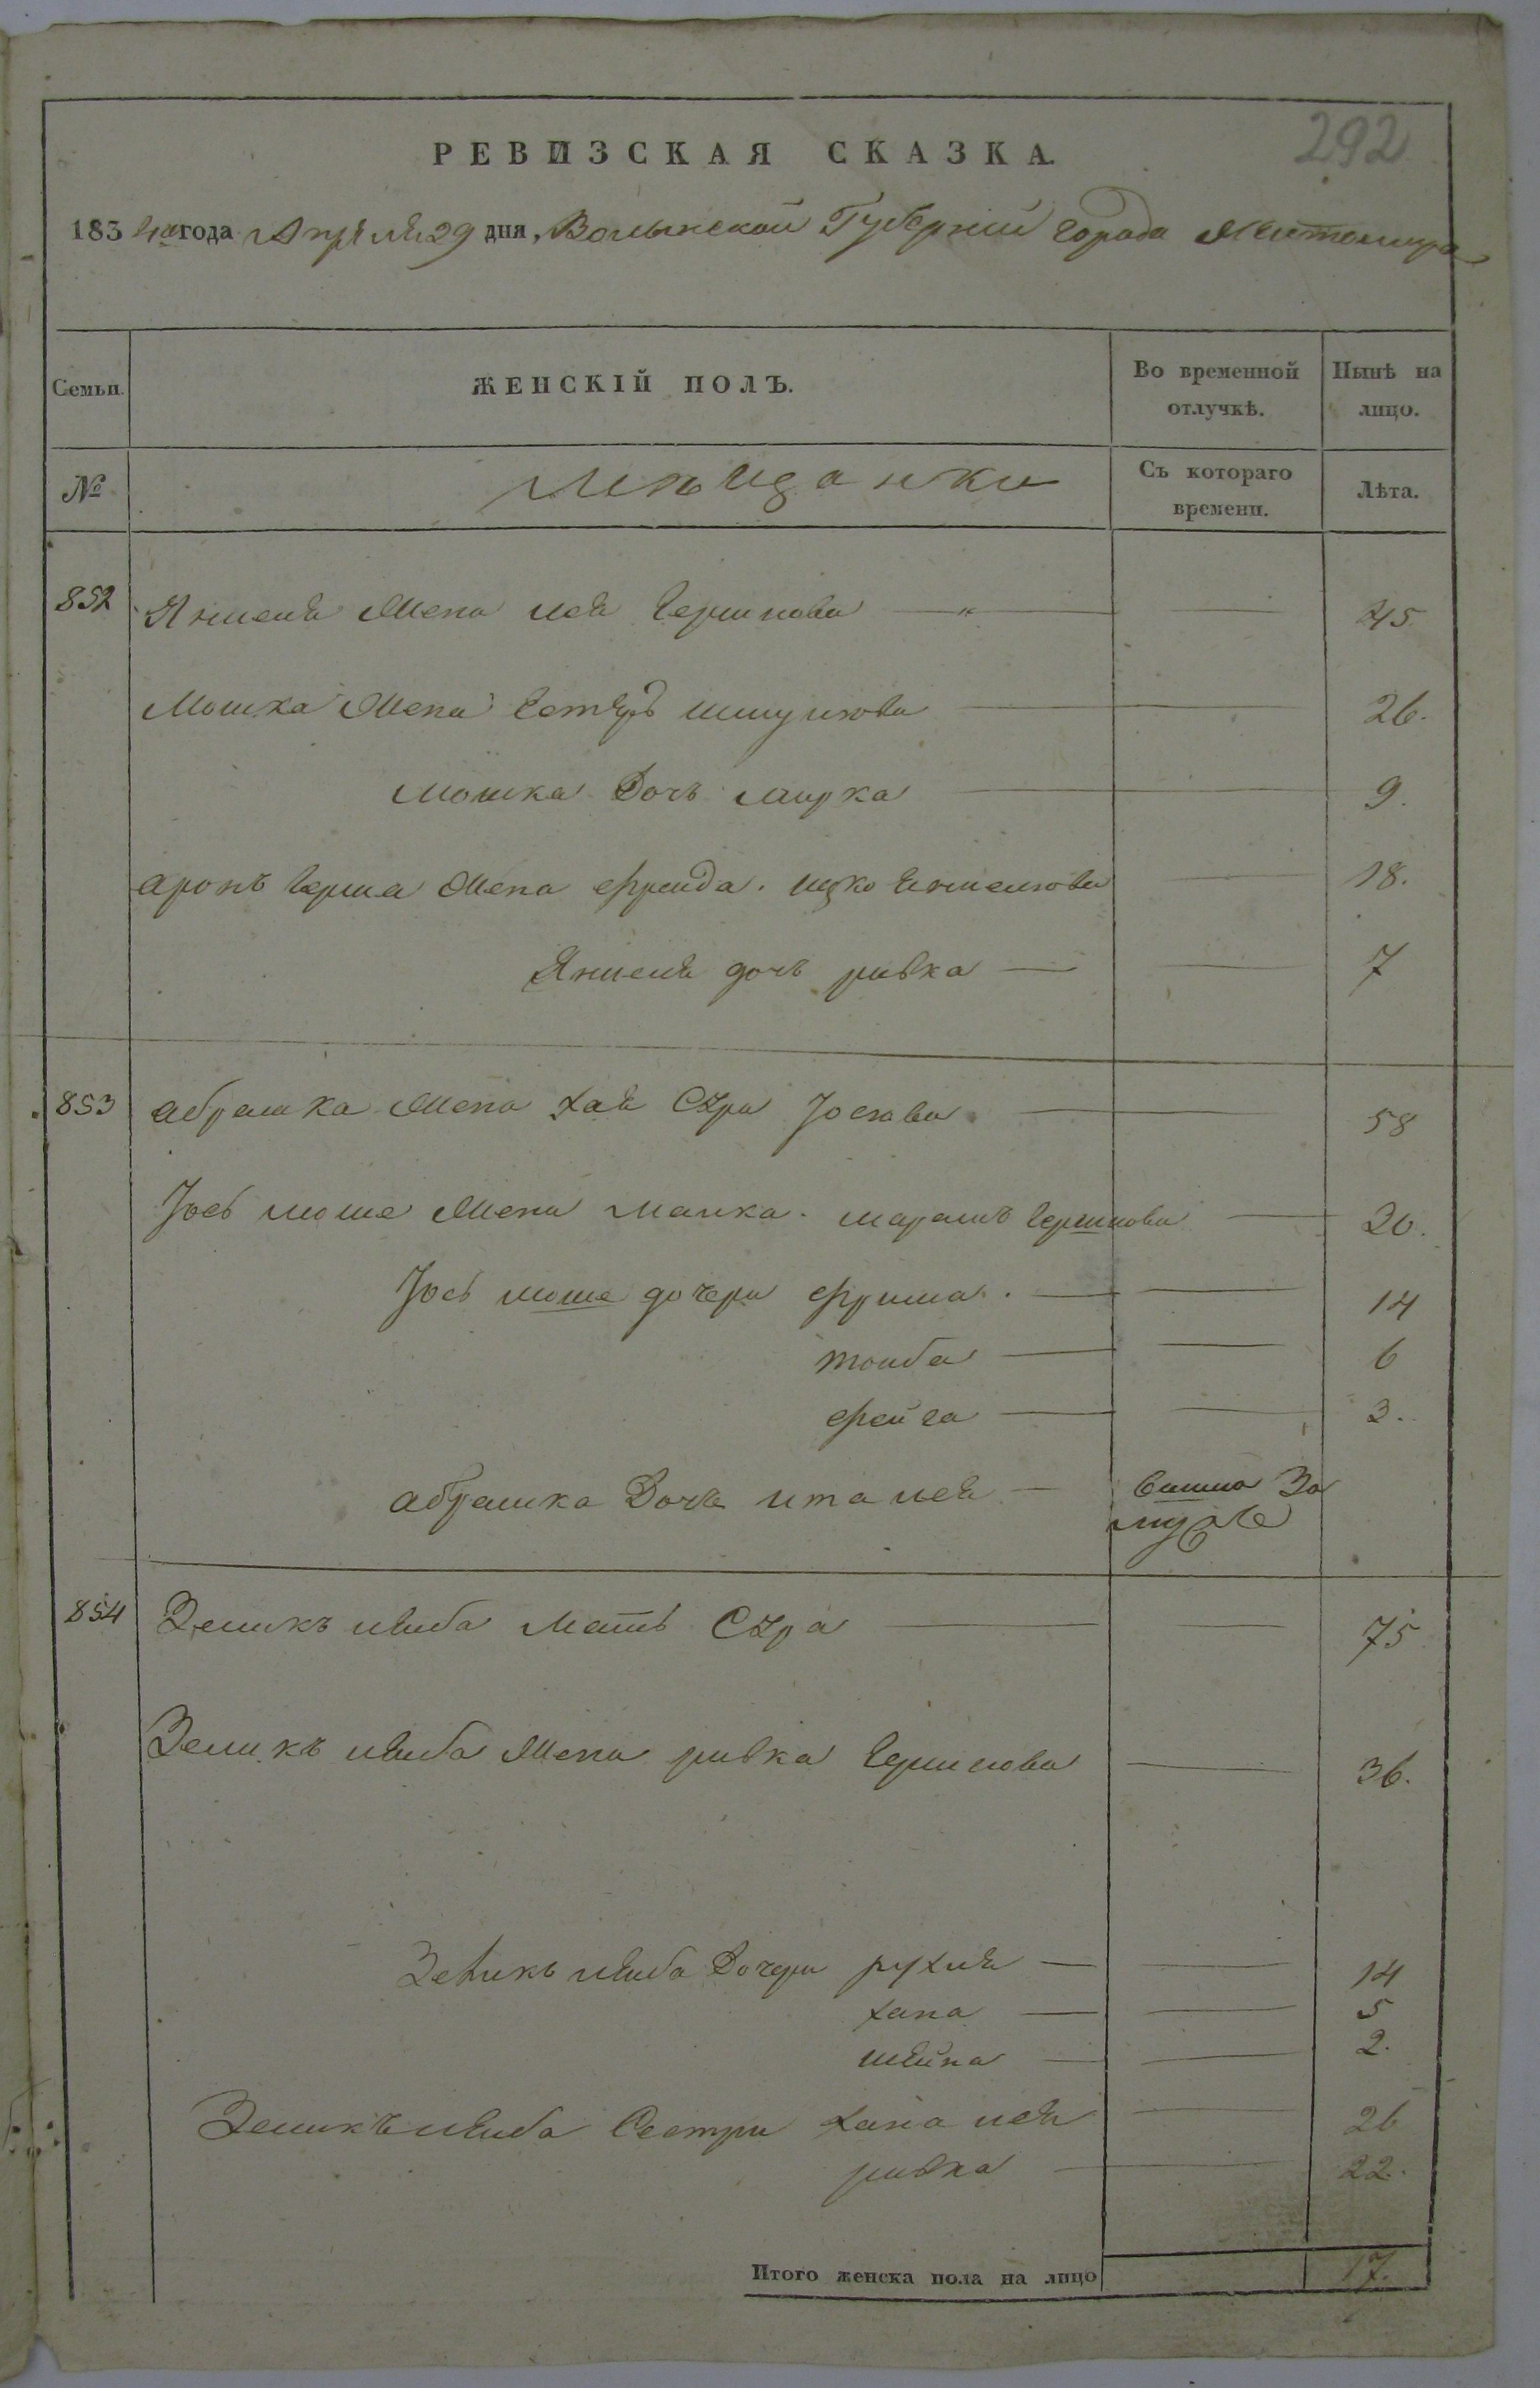 292
РЕВИЗСКАЯ СКАЗКА.
1834го года Апреля 29 дня, Волынской Губернии города Житомира
Семьи. ЖЕНСКІЙ ПОЛЪ. Во временной отлучкѣ. Нынѣ на лицо.
№ мещанки Съ котораго времени. Лѣта.
852 Янкеля Жена Лея Гершкова — 45
Мошка Жена Естеръ — 26.
Мошка Дочь мирка — 9.
аронъ герша Жена фрейда. ицко — 18.
Янкеля дочь ривка — 7
853 абрашка Жена хая Сура Іоскова — 58
Іось моше Жена малка. Гершкова — 30.
Іось моше дочери фрима. — 14
тойба — 6
фейга — 3.
абрашка Дочь ита лея — вышла За
муже
854 Зеликъ лейба Мать Сура — 75
Зеликъ лейба Жена ривка Гершкова — 36.
Зеликъ лейба Дочери рухля — 14
хана — 5
шейна — 2.
Зеликъ лейба Сестри хана лея — 26
ривка — 22.
Итого женска пола на лицо 17.